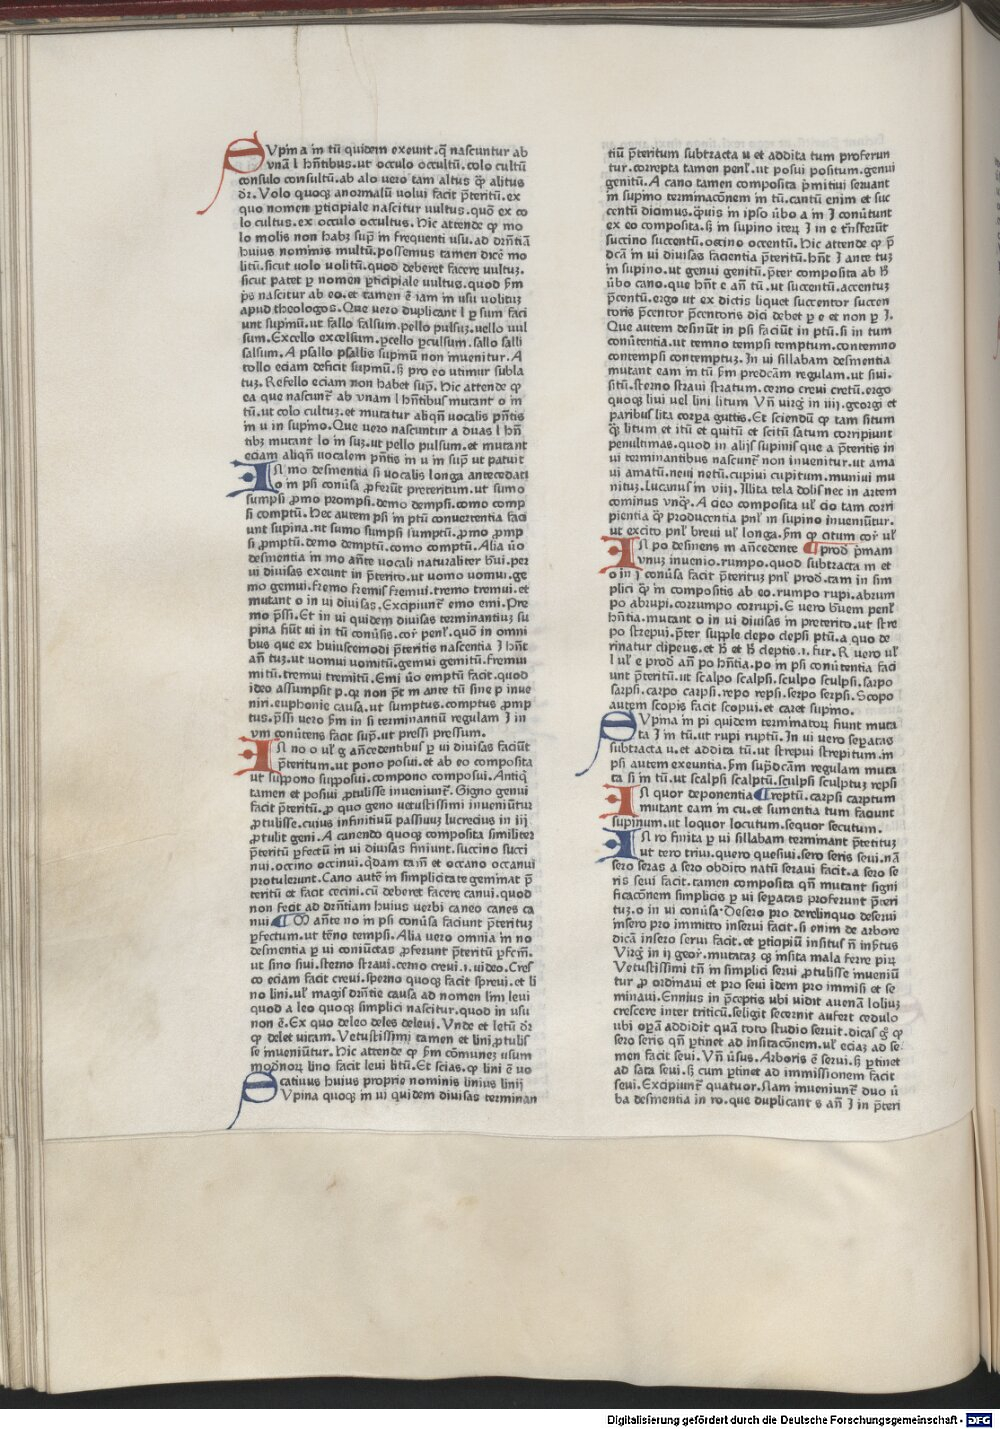 SVpina in tū quidem exeunt.q̄ nascuntur ab
vnā l hn̄tibus.ut occulo occultū.colo cultū
consulo consultū.ab alo vero tam altus q̄ꝫ alitus
dr̄. Volo quoqꝫ anormalū volui facit p̄teritū.ex
quo nomen ꝑticipiale nascitur uultus.quō ex co
lo cultus.ex occulo occultus. Hic attende ꝙ mo
lo molis non habꝫ sup̄ in frequenti usu.ad drn̄tiā
huius nominis multū.possemus tamen dicē mo
litū.sicut uolo uolitū.quod deberet facere uultuꝫ.
sicut patet ꝑ nomen ꝑticipiale uultus.quod ẜm
nascitur ab eo.et tamen ē iam in usu uolituꝫ
apud theologos. Que vero duplicant l ꝑ sum faci
unt supinū.ut fallo falsum.pello pulsuꝫ.vello vul
sum. Excello excelsum.ꝑcello ꝑculsum.sallo salli
salsum. A psallo psallis supinū non inuenitur. A
tollo eciam deficit supinū.sꝫ pro eo utimur subla
tuꝫ. Refello eciam non habet sup̄. Hic attende ꝙ
ea que nascunt̄ ab vnam l hn̄tibus mutant o in
tū.ut colo cultuꝫ.et mutatur aliqn̄ uocalis pn̄tis
in u in supino. Que vero nascuntur a duas l hn̄
tibꝫ mutant lo in suꝫ.ut pello pulsum.et mutant
eciam aliqn̄ uocalem pn̄tis in u in sup̄ ut patuit
IN mo desinentia si vocalis longa antecedat
o in psi conūsa ꝓferūt preteritum.ut sumo
sumpsi ꝓmo prompsi.demo dempsi.como comp
si comptū. Hec autem psi in ptū conuertentia faci
unt supina.ut sumo sumpsi sumptū.ꝓmo ꝓmp
si ꝓmptū.demo demptū.como comptū. Alia ūo
desinentia in mo an̄te vocali naturaliter bꝛui.per
ui diuisas exeunt in p̄terito.ut uomo uomui.ge
mo gemui.fremo fremis fremui.tremo tremui.et
mutant o in ui diuisas. Excipiunt̄ emo emi. Pre
mo p̄ssi. Et in ui quidem diuisas terminantiuꝫ su
pina fiūt ui in tū conūsis.cor̄ penl̄.quō in omni
bus que ex huiuscemodi p̄teritis nascentia I hn̄t
an̄ tuꝫ.ut uomui uomitū.gemui gemitū.fremui
mitū.tremui tremitū. Emi ūo emptū facit.quod
ideo assumpsit p.qꝫ non p̄t m ante tū sine p inue
niri.euphonie causa.ut sumptus.comptus ꝓmp
tus.p̄ssi vero ẜm in si terminantiū regulam I in
vm conūtens facit sup̄.ut pressi pressum.
IN no o ul̄ g an̄cedentibus ꝑ ui diuisas faciūt
p̄teritum.ut pono posui.et ab eo composita
ut suppono supposui.compono composui. Antiq̄
tamen et posiui ꝓtulisse inueniunt̄. Gigno genui
facit p̄teritū.ꝓ quo geno vetustissimi inueniūtur
ꝓtulisse.cuius infinitiuū passiuuꝫ lucrecius in iij
ꝓtulit geni. A canendo quoqꝫ composita similiter
p̄teritū ꝑfectū in ui diuisas finiunt.succino succi
nui.occino occinui.qd̄am tam̄ et occano occanui
protulerunt. Cano autē in simplicitate geminat p̄
teritū et facit cecini.cū deberet facere canui.quod
non fecit ad drn̄tiam huius uerbi caneo canes ca
nui ¶ M an̄te no in psi conūsa faciunt p̄terituꝫ
ꝑfectum.ut tēno tempsi. Alia vero omnia in no
desinentia ꝑ ui coniūctas ꝓferunt p̄teritū ꝑfcm̄.
ut sino siui.sterno straui.cerno creui.i.uideo. Cres
co eciam facit creui.sperno quoqꝫ facit spreui.et li
no lini.ul̄ magis drn̄tie causa ad nomen lini leui
quod a leo quoqꝫ simplici nascitur.quod in usu
non ē. Ex quo deleo deles deleui. Vnde et letū dr̄
ꝙ delet uitam. Vetustissimi tamen et lini ꝓtulis
se inueniūtur. Hic attende ꝙ ẜm cōmuneꝫ usum
modn̄orꝝ lino facit leui litū. Et scias.ꝙ lini ē uo
catiuus huius proprie nominis linius linij
SVpina quoqꝫ in ui quidem diuisas terminan
tiū p̄teritum subtracta u et addita tum proferun
tur.correpta tamen penl̄.ut posui positum.genui
genitū. A cano tamen composita p̄mitiui seruant
in supino terminacōnem in tū.cantū enim et suc
centū dicimus.q̄uis in ipso ūbo a in I conūtunt
ex eo composita.sꝫ in supino iterꝝ I in e trn̄sferūt
succino succentū.occino occentū. Hic attende ꝙ p̄
dcā in ui diuisas facientia p̄teritū.hn̄t I ante tuꝫ
in supino.ut genui genitū.p̄ter composita ab ħ
ūbo cano.que hn̄t e an̄ tū.ut succentū.accentuꝫ
p̄centū.ergo ut ex dictis liquet succentor succen
toris p̄centor p̄centoris dici debet ꝑ e et non ꝑ I.
Que autem desinūt in psi faciūt in ptū.si in tum
conūtentia.ut temno tempsi temptum.contemno
contempsi contemptuꝫ. In ui sillabam desinentia
mutant eam in tū ẜm predcām regulam.ut siui.
sitū.sterno straui stratum.cerno creui cretū.ergo
quoqꝫ liui uel lini litum Vn̄ virḡ in iiij.georgi et
paribus lita corꝑa guttis. Et sciendū ꝙ tam situm
q̄ꝫ litum et itū et quitū et scitū satum corripiunt
penultimas.quod in alijs supinis que a p̄teritis in
ui terminantibus nascunt̄ non inuenitur.ut ama
ui amatū.neui netū.cupiui cupitum.muniui mu
nituꝫ. Lucanus in viij. Illita tela dolis nec in artem
cominus vnqꝫ. A cieo composita ul̄ cio tam corri
pientia q̄ꝫ producentia pnl̄ in supino inueniūtur.
ut excito pnl̄ breui ul̄ longa.ẜm ꝙ citum cor̄ ul̄
IN po desinens m an̄cedente ¶ prod̄ p̄mam
vnuꝫ inuenio.rumpo.quod subtracta m et
o in i conūsa facit p̄terituꝫ pnl̄ prod̄.tam in sim
plici q̄ꝫ in compositis ab eo.rumpo rupi.abrum
po abrupi.corrumpo corrupi. E vero bꝛ̄uem penl̄
hn̄tia.mutant o in ui diuisas in preterito.ut stre
po strepui.p̄ter supple clepo clepsi ptū.a quo de
rinatur clipeus.et ħ et ħ cleptis.i.fur. R vero ul̄
l ul̄ e prod̄ an̄ po hn̄tia.po in psi conūtentia faci
unt p̄teritū.ut scalpo scalpsi.sculpo sculpsi.sarpo
sarpsi.carpo carpsi.repo repsi.serpo serpsi. Scopo
autem scopis facit scopui.et caret supino.
SVpina in pi quidem terminatorꝝ fiunt muta
ta I in tū.ut rupi ruptū. In ui vero seꝑatas
subtracta u.et addita tū.ut strepui strepitum.in
psi autem exeuntia.ẜm sup̄dcām regulam muta
ta si in tū.ut scalpsi scalptū.sculpsi sculptuꝫ repsi
IN quor deponentia ¶ reptū.carpsi carptum
mutant eam in cu.et sumentia tum faciunt
supinum.ut loquor locutum.sequor secutum.
IN ro finita ꝑ ui sillabam terminant p̄terituꝫ
ut tero triui.quero quesiui.sero seris seui.nā
sero seras a sero obdito natū seraui facit.a sero se
ris seui facit.tamen composita qn̄ mutant signi
ficacōnem simplicis ꝑ ui seꝑatas proferunt p̄teri
tuꝫ.o in ui conūsa. Desero pro derelinquo deserui
insero pro immitto inserui facit.si enim de arbore
dicā insero serui facit.et ꝑticipiū insitus n̄ insertus
Virḡ in ij geor̄.mutataꝫ qꝫ insita mala ferre pirꝫ
Vetustissimi tn̄ in simplici serui ꝓtulisse inueniū
tur ꝓ ordinaui et pro seui idem pro immisi et se
minaui. Ennius in p̄ceptis ubi vidit auenā loliuꝫ
crescere inter triticū.seligit secernit aufert cedulo
ubi oꝑā addidit quā toto studio seruit.dicas g̊ ꝙ
sero seris qn̄ ꝑtinet ad insitacōnem.ul̄ eciaꝫ ad se
men facit seui. Vn̄ ūsus. Arboris ē serui.sꝫ ꝑtinet
ad sata seui.sꝫ cum ꝑtinet ad immissionem facit
seui. Excipiunt̄ quatuor. Nam inueniunt̄ duo ū
ba desinentia in ro.que duplicant s an̄ I in p̄teri
Digitalisierung gefördert durch die Deutsche Forschungsgemeinschaft - DFG